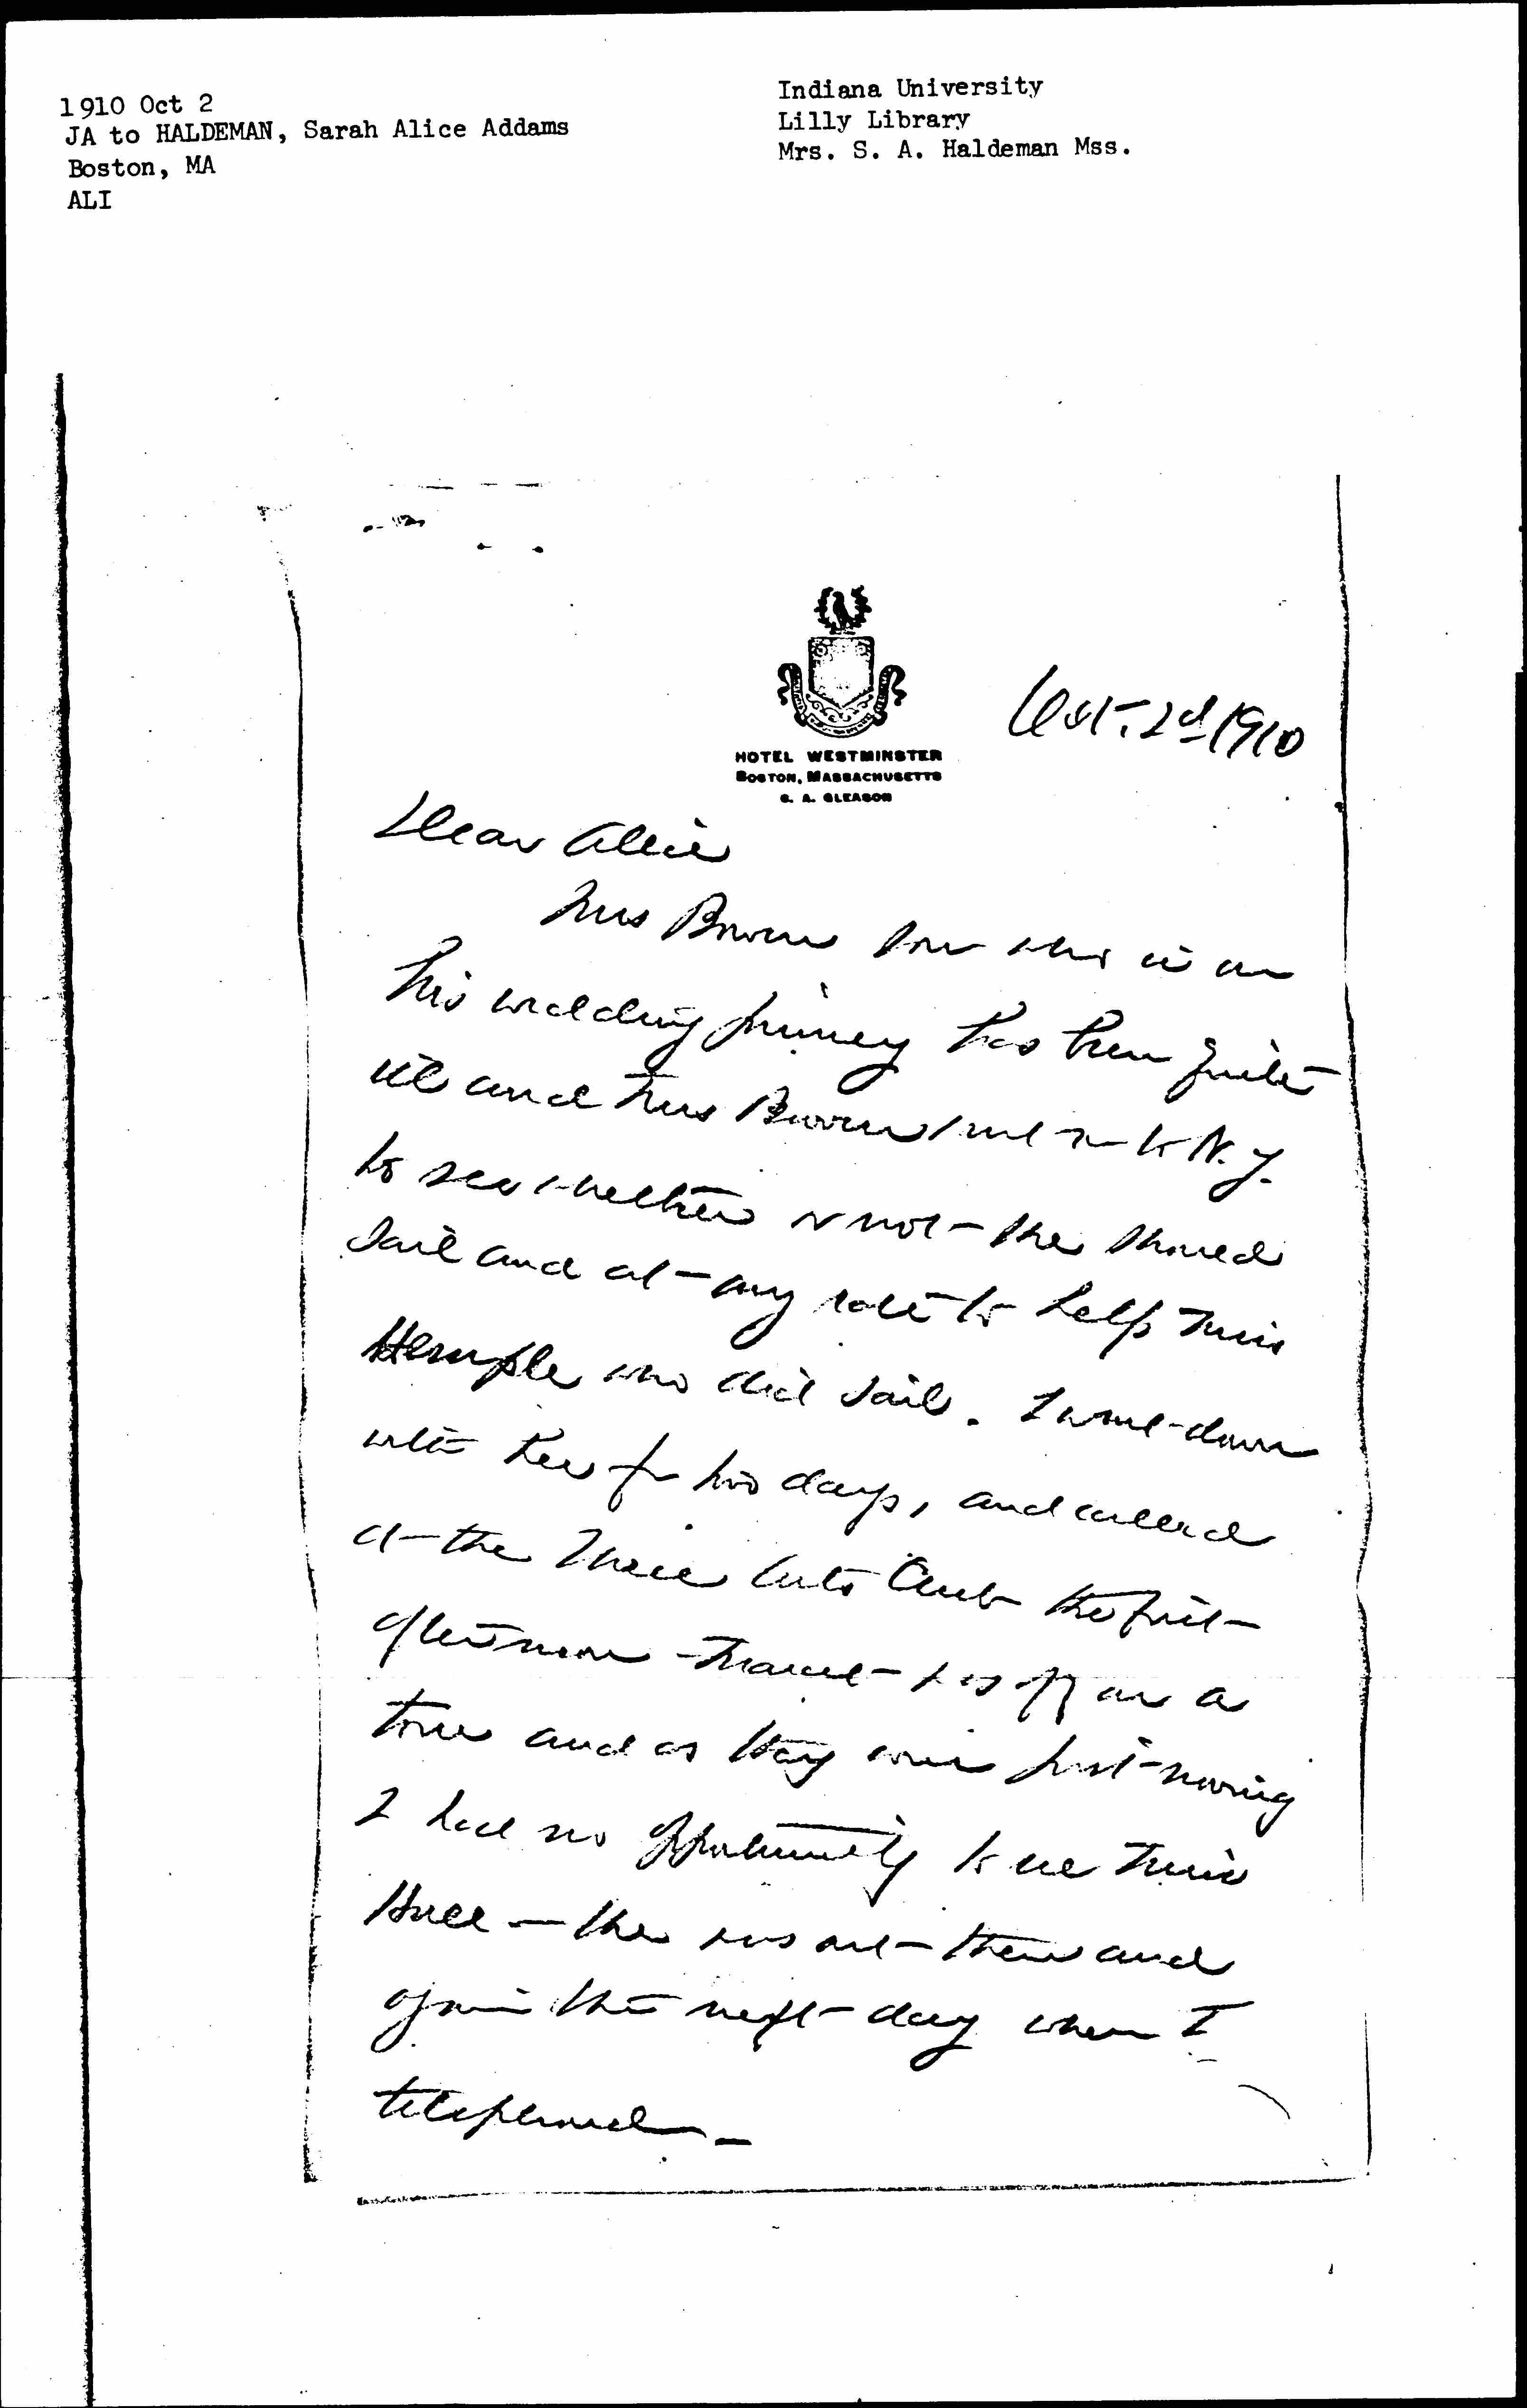 1910 Oct 2
JA to HALDEMAN, Sarah Alice Addams
Boston, MA
ALI
Indiana University
Lilly Library
Mrs. S. A. Haldeman Mss.
HOTEL WESTMINSTER
BOSTON, MASSACHUSETTS
C. A. GLEASON
Oct. 2d 1910
Dear Allie
Mrs Bowen son who is on
his wedding journey has been quite
ill and Mrs Bowen went on to N.Y.
to see whether or not she should
sail and at any rate to help Miss
Hemple who did sail. I went down
with her for two days, and called
at the Three Arts Club the first
afternoon Marcet was off on a
tour and as they were just moving
I had no opportunity to see Miss
Hall — she was out then and
again the next day when I
telephoned —